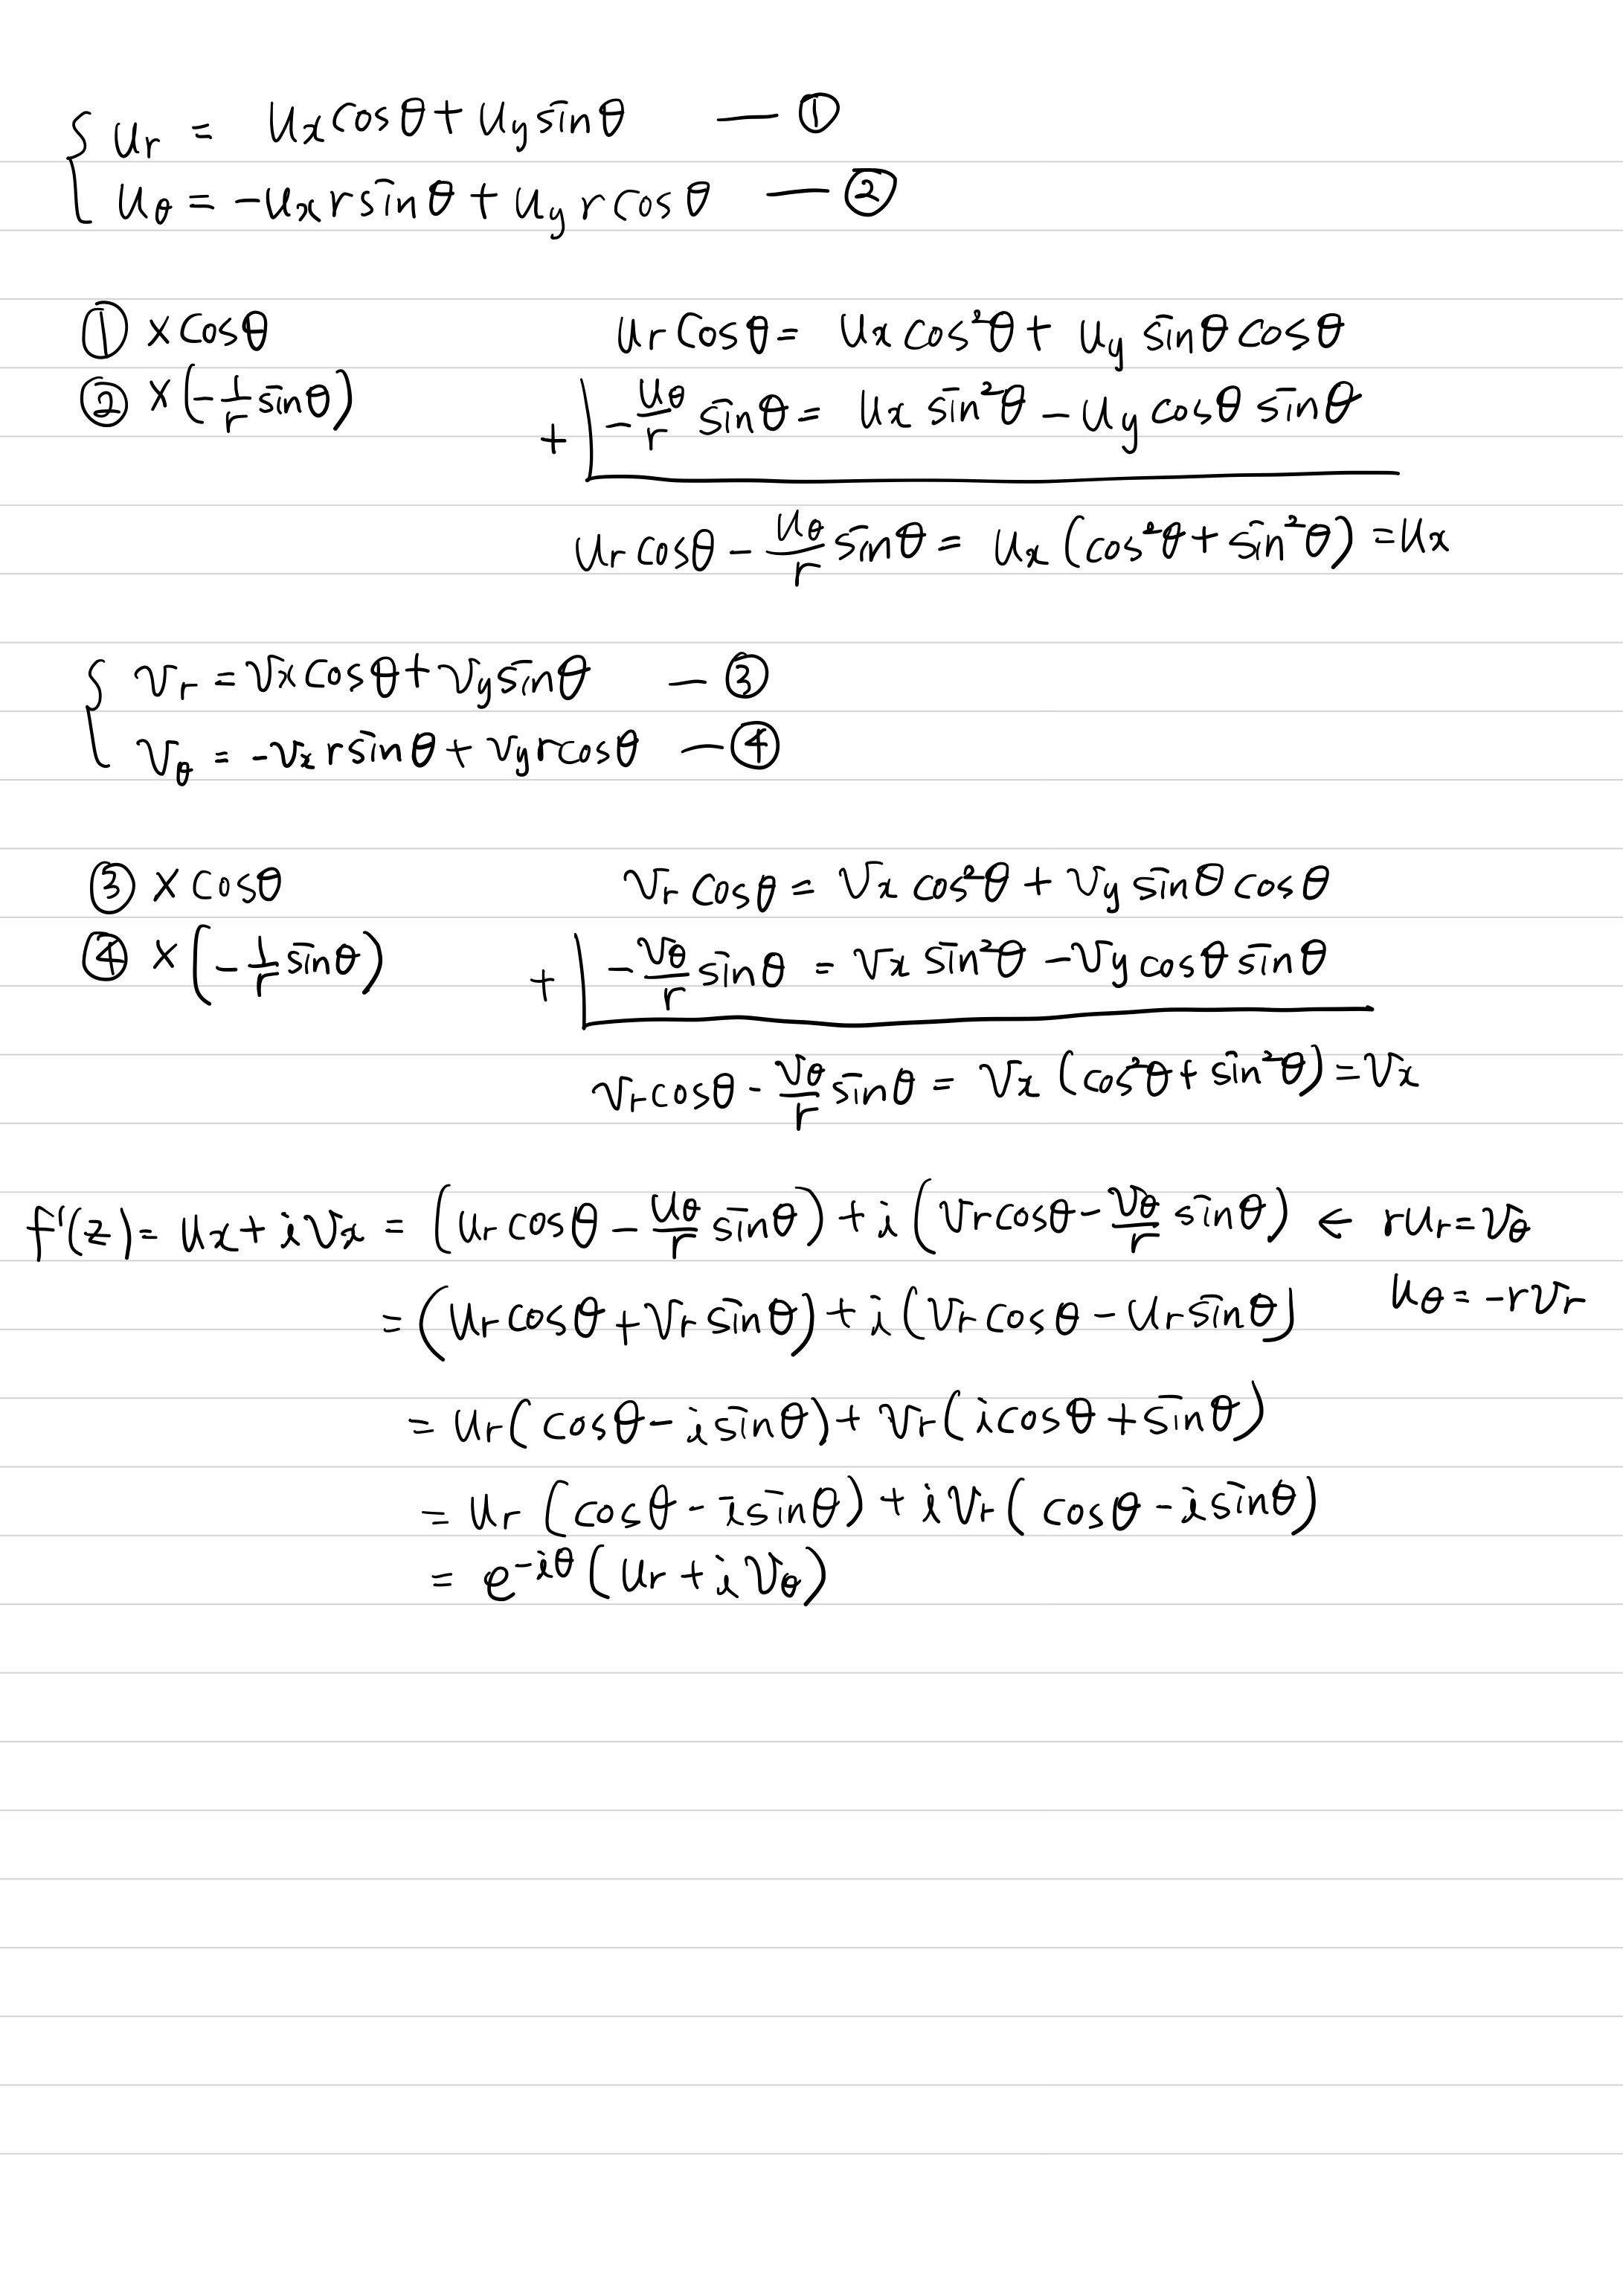 { u_r = u_x cosθ + u_y sinθ — ①
u_θ = -u_x r sinθ + u_y r cosθ — ②
① × cosθ u_r cosθ = u_x cos²θ + u_y sinθ cosθ
② × (-1/r sinθ) + | -u_θ/r sinθ = u_x sin²θ - u_y cosθ sinθ
u_r cosθ - u_θ/r sinθ = u_x (cos²θ + sin²θ) = u_x
{ v_r = v_x cosθ + v_y sinθ — ③
v_θ = -v_x r sinθ + v_y r cosθ — ④
③ × cosθ v_r cosθ = v_x cos²θ + v_y sinθ cosθ
④ × (-1/r sinθ) + | -v_θ/r sinθ = v_x sin²θ - v_y cosθ sinθ
v_r cosθ - v_θ/r sinθ = v_x (cos²θ + sin²θ) = v_x
f'(z) = u_x + i v_x = (u_r cosθ - u_θ/r sinθ) + i (v_r cosθ - v_θ/r sinθ) ← r u_r = v_θ
= (u_r cosθ + v_r sinθ) + i (v_r cosθ - u_r sinθ) u_θ = -r v_r
= u_r (cosθ - i sinθ) + v_r (i cosθ + sinθ)
= u_r (cosθ - i sinθ) + i v_r (cosθ - i sinθ)
= e^{-iθ} (u_r + i v_θ)